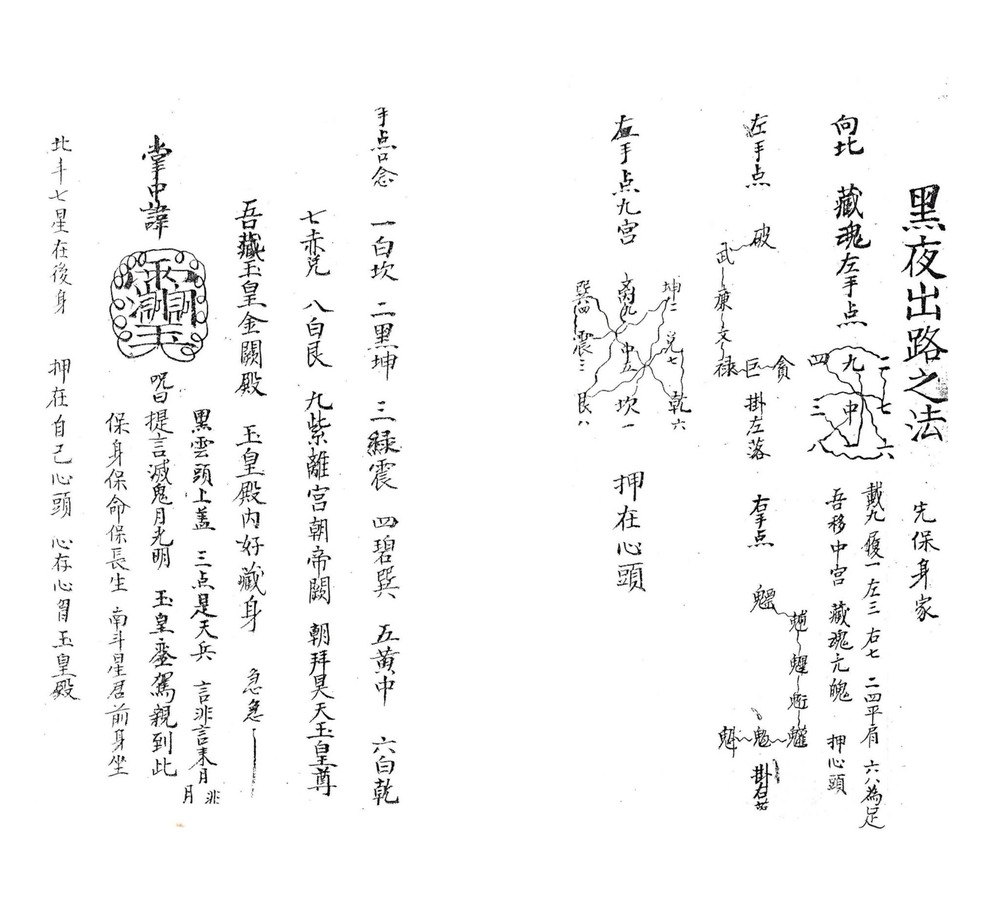 黑夜出路之法 先保身家
戴九履一左三右七 二四平肩 六八為足
向北 藏魂左手点 四 九 二 三 中 七 八 一 六 吾移中宮 藏魂亢魄 押心頭
左手点 破 武 廉 文 禄 巨 貪 掛左落 右手点 魁 掛右
左手点九宮 巽四 离九 坤二 震三 中五 兌七 艮八 坎一 乾六 押在心頭
手点口念 一白坎 二黑坤 三緑震 四碧巽 五黃中 六白乾
七赤兌 八白艮 九紫離宮朝帝闕 朝拜昊天玉皇尊
吾藏玉皇金闕殿 玉皇殿內好藏身 急急
掌中諱 咒曰 黑雲頭上盖 三点是天兵 言非言耒月 非月
提言滅鬼月光明 玉皇銮駕親到此
保身保命保長生 南斗星君前身坐
北斗七星在後身 押在自己心頭 心存心習玉皇殿